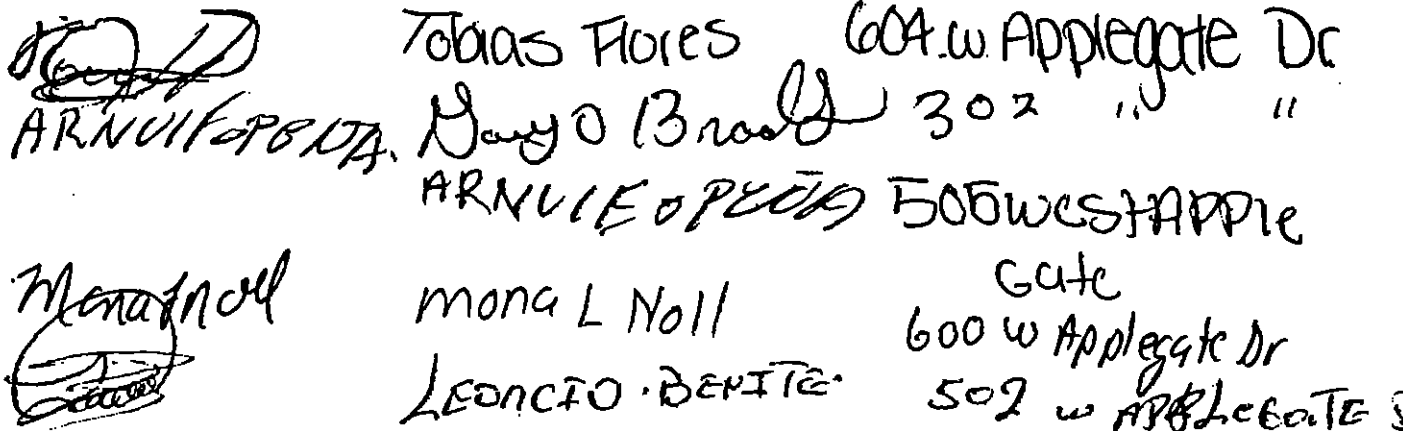 Tobias Flores 604 w Applegate Dr
ARNULFO PENA. Gary D 302 " "
ARNULFO PEÑA 505 west APPle
Gate
Mona L Noll mona L Noll 600 w Applegate Dr
LEONCIO . BENITE . 502 w APPLEGATE